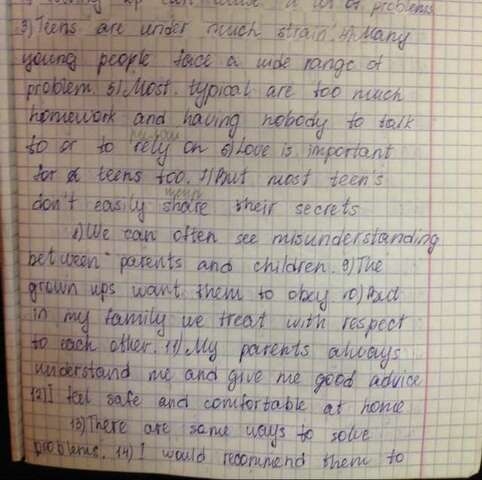 can a lot of problems
3) Teens are under much strain. 4) Many
young people face a wide range of
problem. 5) Most typical are too much
homework and having nobody to talk
to or to rely on 6) Love is important
for teens too. 7) But most teen's
don't easily share their secrets
8) We can often see misunderstanding
between parents and children. 9) The
grown ups want them to obey 10) But
in my family we treat with respect
to each other. 11) My parents always
understand me and give me good advice
12) I feel safe and comfortable at home
13) There are some ways to solve
problems. 14) I would recommend them to